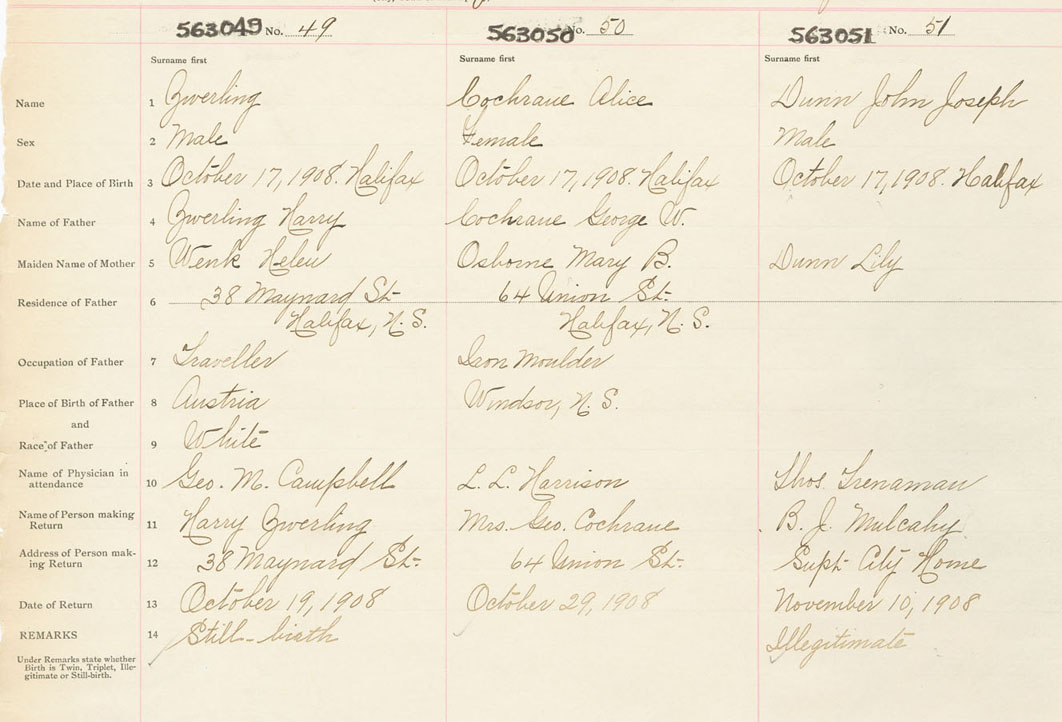 563049 No. 49 563050 No. 50 563051 No. 51
Surname first Surname first Surname first
Name 1 Zwerling Cochrane Alice Dunn John Joseph
Sex 2 Male Female Male
Date and Place of Birth 3 October 17, 1908. Halifax October 17, 1908. Halifax October 17, 1908. Halifax
Name of Father 4 Zwerling Harry Cochrane George W.
Maiden Name of Mother 5 Wenk Helen Osborne Mary B. Dunn Lily
Residence of Father 6 38 Maynard St. 64 Union St.
Halifax, N. S. Halifax, N. S.
Occupation of Father 7 Traveller Iron Moulder
Place of Birth of Father 8 Austria Windsor, N. S.
and
Race of Father 9 White
Name of Physician in
attendance 10 Geo. M. Campbell L. L. Harrison Thos. Trenaman
Name of Person making
Return 11 Harry Zwerling Mrs. Geo. Cochrane B. J. Mulcahy
Address of Person mak-
ing Return 12 38 Maynard St. 64 Union St. Supt. City Home
Date of Return 13 October 19, 1908 October 29, 1908 November 10, 1908
REMARKS 14 Still-birth Illegitimate
Under Remarks state whether
Birth is Twin, Triplet, Ille-
gitimate or Still-birth.